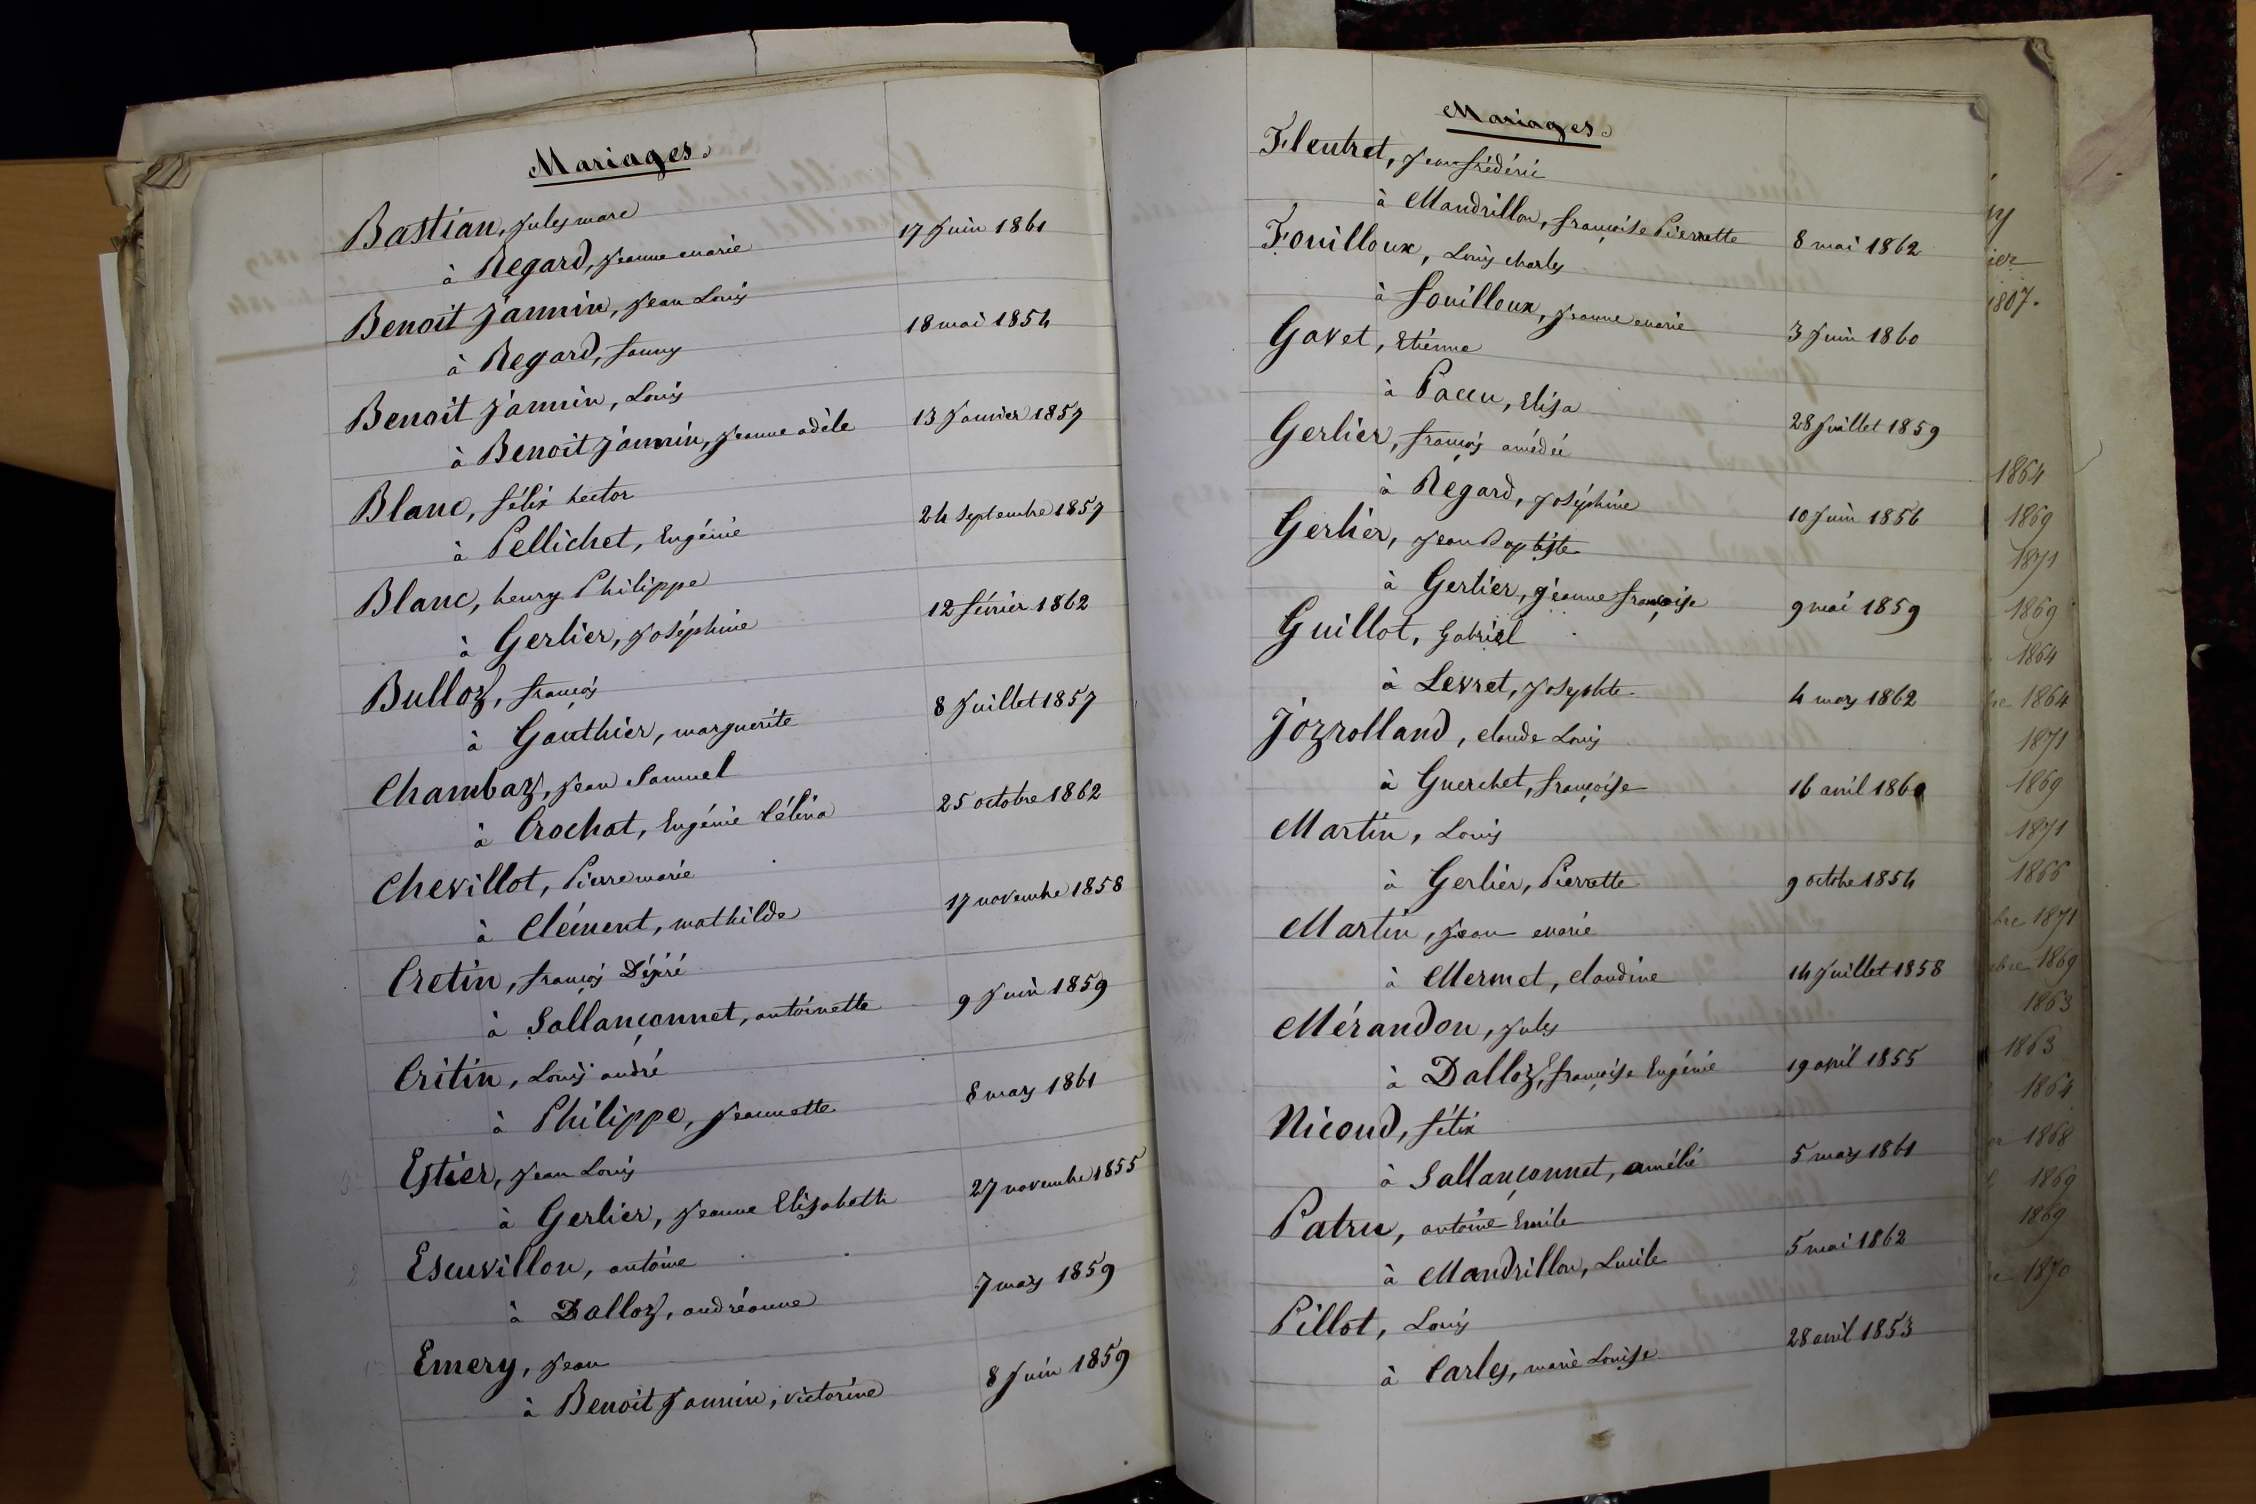 Mariages.
Bastian, Jules marc
à Regard, Jeanne marie 17 Juin 1861
Benoit Jannin, Jean Louis
à Regard, fanny 18 mai 1854
Benoit Jannin, Louis
à Benoit Jannin, Jeanne adèle 13 Janvier 1857
Blanc, félix hector
à Pellichet, Eugénie 24 septembre 1857
Blanc, henry Philippe
à Gerlier, Joséphine 12 février 1862
Bulloz, françois
à Gauthier, marguerite 8 Juillet 1857
Chambaz, Jean Samuel
à Crochat, Eugénie Céléna 25 octobre 1862
Chevillot, Pierre marie
à Clément, mathilde 17 novembre 1858
Cretin, françois Désiré
à Sallançonnet, antoinette 9 Juin 1859
Critin, Louis andré
à Philippe, Jeannette 8 mars 1861
Estier, Jean Louis
à Gerlier, Jeanne Elisabeth 27 novembre 1855
Escuvillon, antoine
à Dalloz, andréanne 7 mars 1859
Emery, Jean
à Benoit Jannin, victorine 8 Juin 1859
Mariages.
Fleutret, Jean frédéric
à Mandrillon, françoise Pierrette 8 mai 1862
Fouilloux, Louis charles
à fouilloux, Jeanne marie 3 Juin 1860
Gavet, Etienne
à Paccu, Elisa 28 Juillet 1859
Gerlier, françois amédée
à Regard, Joséphine 10 Juin 1856
Gerlier, Jean Baptiste
à Gerlier, jeanne françoise 9 mai 1859
Guillot, Gabriel
à Levret, Josephte 4 mars 1862
Jozrolland, claude Louis
à Guerchet, françoise 16 avril 1860
Martin, Louis
à Gerlier, Pierrette 9 octobre 1854
Martin, Jean marie
à Mermet, claudine 14 Juillet 1858
Mérandon, Jules
à Dalloz, françoise Eugénie 19 avril 1855
Nicoud, félix
à Sallançonnet, amélie 5 mars 1861
Patru, antoine Emile
à Mandrillon, Lucile 5 mai 1862
Pillot, Louis
à Carles, marie Louise 28 avril 1853
1807.
1864
1869
1871
1869
1864
1864
1871
1869
1871
1866
1871
1869
1863
1863
1864
1868
1869
1869
1870